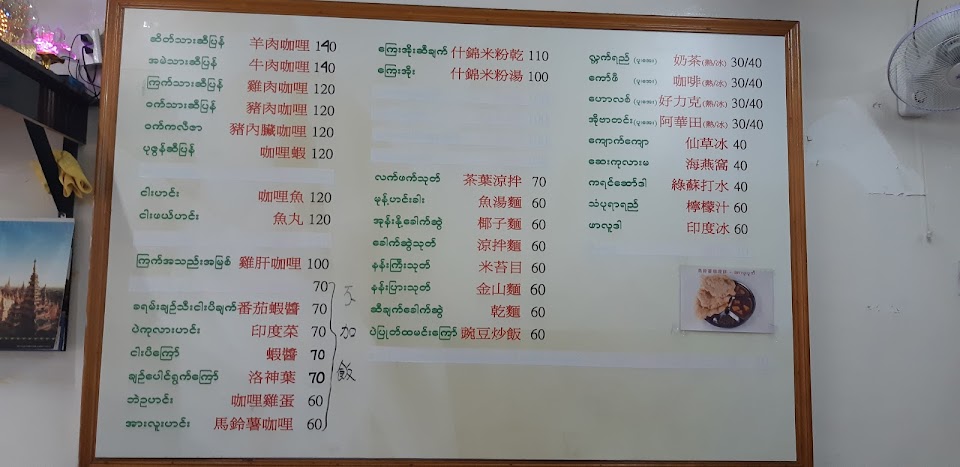 ဆိတ်သားဆီပြန် 羊肉咖哩 140
အမဲသားဆီပြန် 牛肉咖哩 140
ကြက်သားဆီပြန် 雞肉咖哩 120
ဝက်သားဆီပြန် 豬肉咖哩 120
ဝက်ကလီစာ 豬內臟咖哩 120
ပုဇွန်ဆီပြန် 咖哩蝦 120
ငါးဟင်း 咖哩魚 120
ငါးဖယ်ဟင်း 魚丸 120
ကြက်အသည်းအမြစ် 雞肝咖哩 100
70
ခရမ်းချဉ်သီးငါးပိချက် 番茄蝦醬 70
ပဲကုလားဟင်း 印度菜 70
ငါးပိကြော် 蝦醬 70
ချဉ်ပေါင်ရွက်ကြော် 洛神葉 70
ဘဲဥဟင်း 咖哩雞蛋 60
အာလူးဟင်း 馬鈴薯咖哩 60
加飯
ကြေးအိုးဆီချက် 什錦米粉乾 110
ကြေးအိုး 什錦米粉湯 100
လက်ဖက်သုတ် 茶葉涼拌 70
မုန့်ဟင်းခါး 魚湯麵 60
အုန်းနို့ခေါက်ဆွဲ 椰子麵 60
ခေါက်ဆွဲသုတ် 涼拌麵 60
နန်းကြီးသုတ် 米苔目 60
နန်းပြားသုတ် 金山麵 60
ဆီချက်ခေါက်ဆွဲ 乾麵 60
ပဲပြုတ်ထမင်းကြော် 豌豆炒飯 60
လ္ဘက်ရည် (ပူ/အေး) 奶茶(熱/冰) 30/40
ကော်ဖီ (ပူ/အေး) 咖啡(熱/冰) 30/40
ဟောလစ် (ပူ/အေး) 好力克(熱/冰) 30/40
အိုဗာတင်း (ပူ/အေး) 阿華田(熱/冰) 30/40
ကျောက်ကျော 仙草冰 40
ဆေးကုလားမ 海燕窩 40
ကရင်ဆော်ဒါ 綠蘇打水 40
သံပုရာရည် 檸檬汁 60
ဖာလူဒါ 印度冰 60